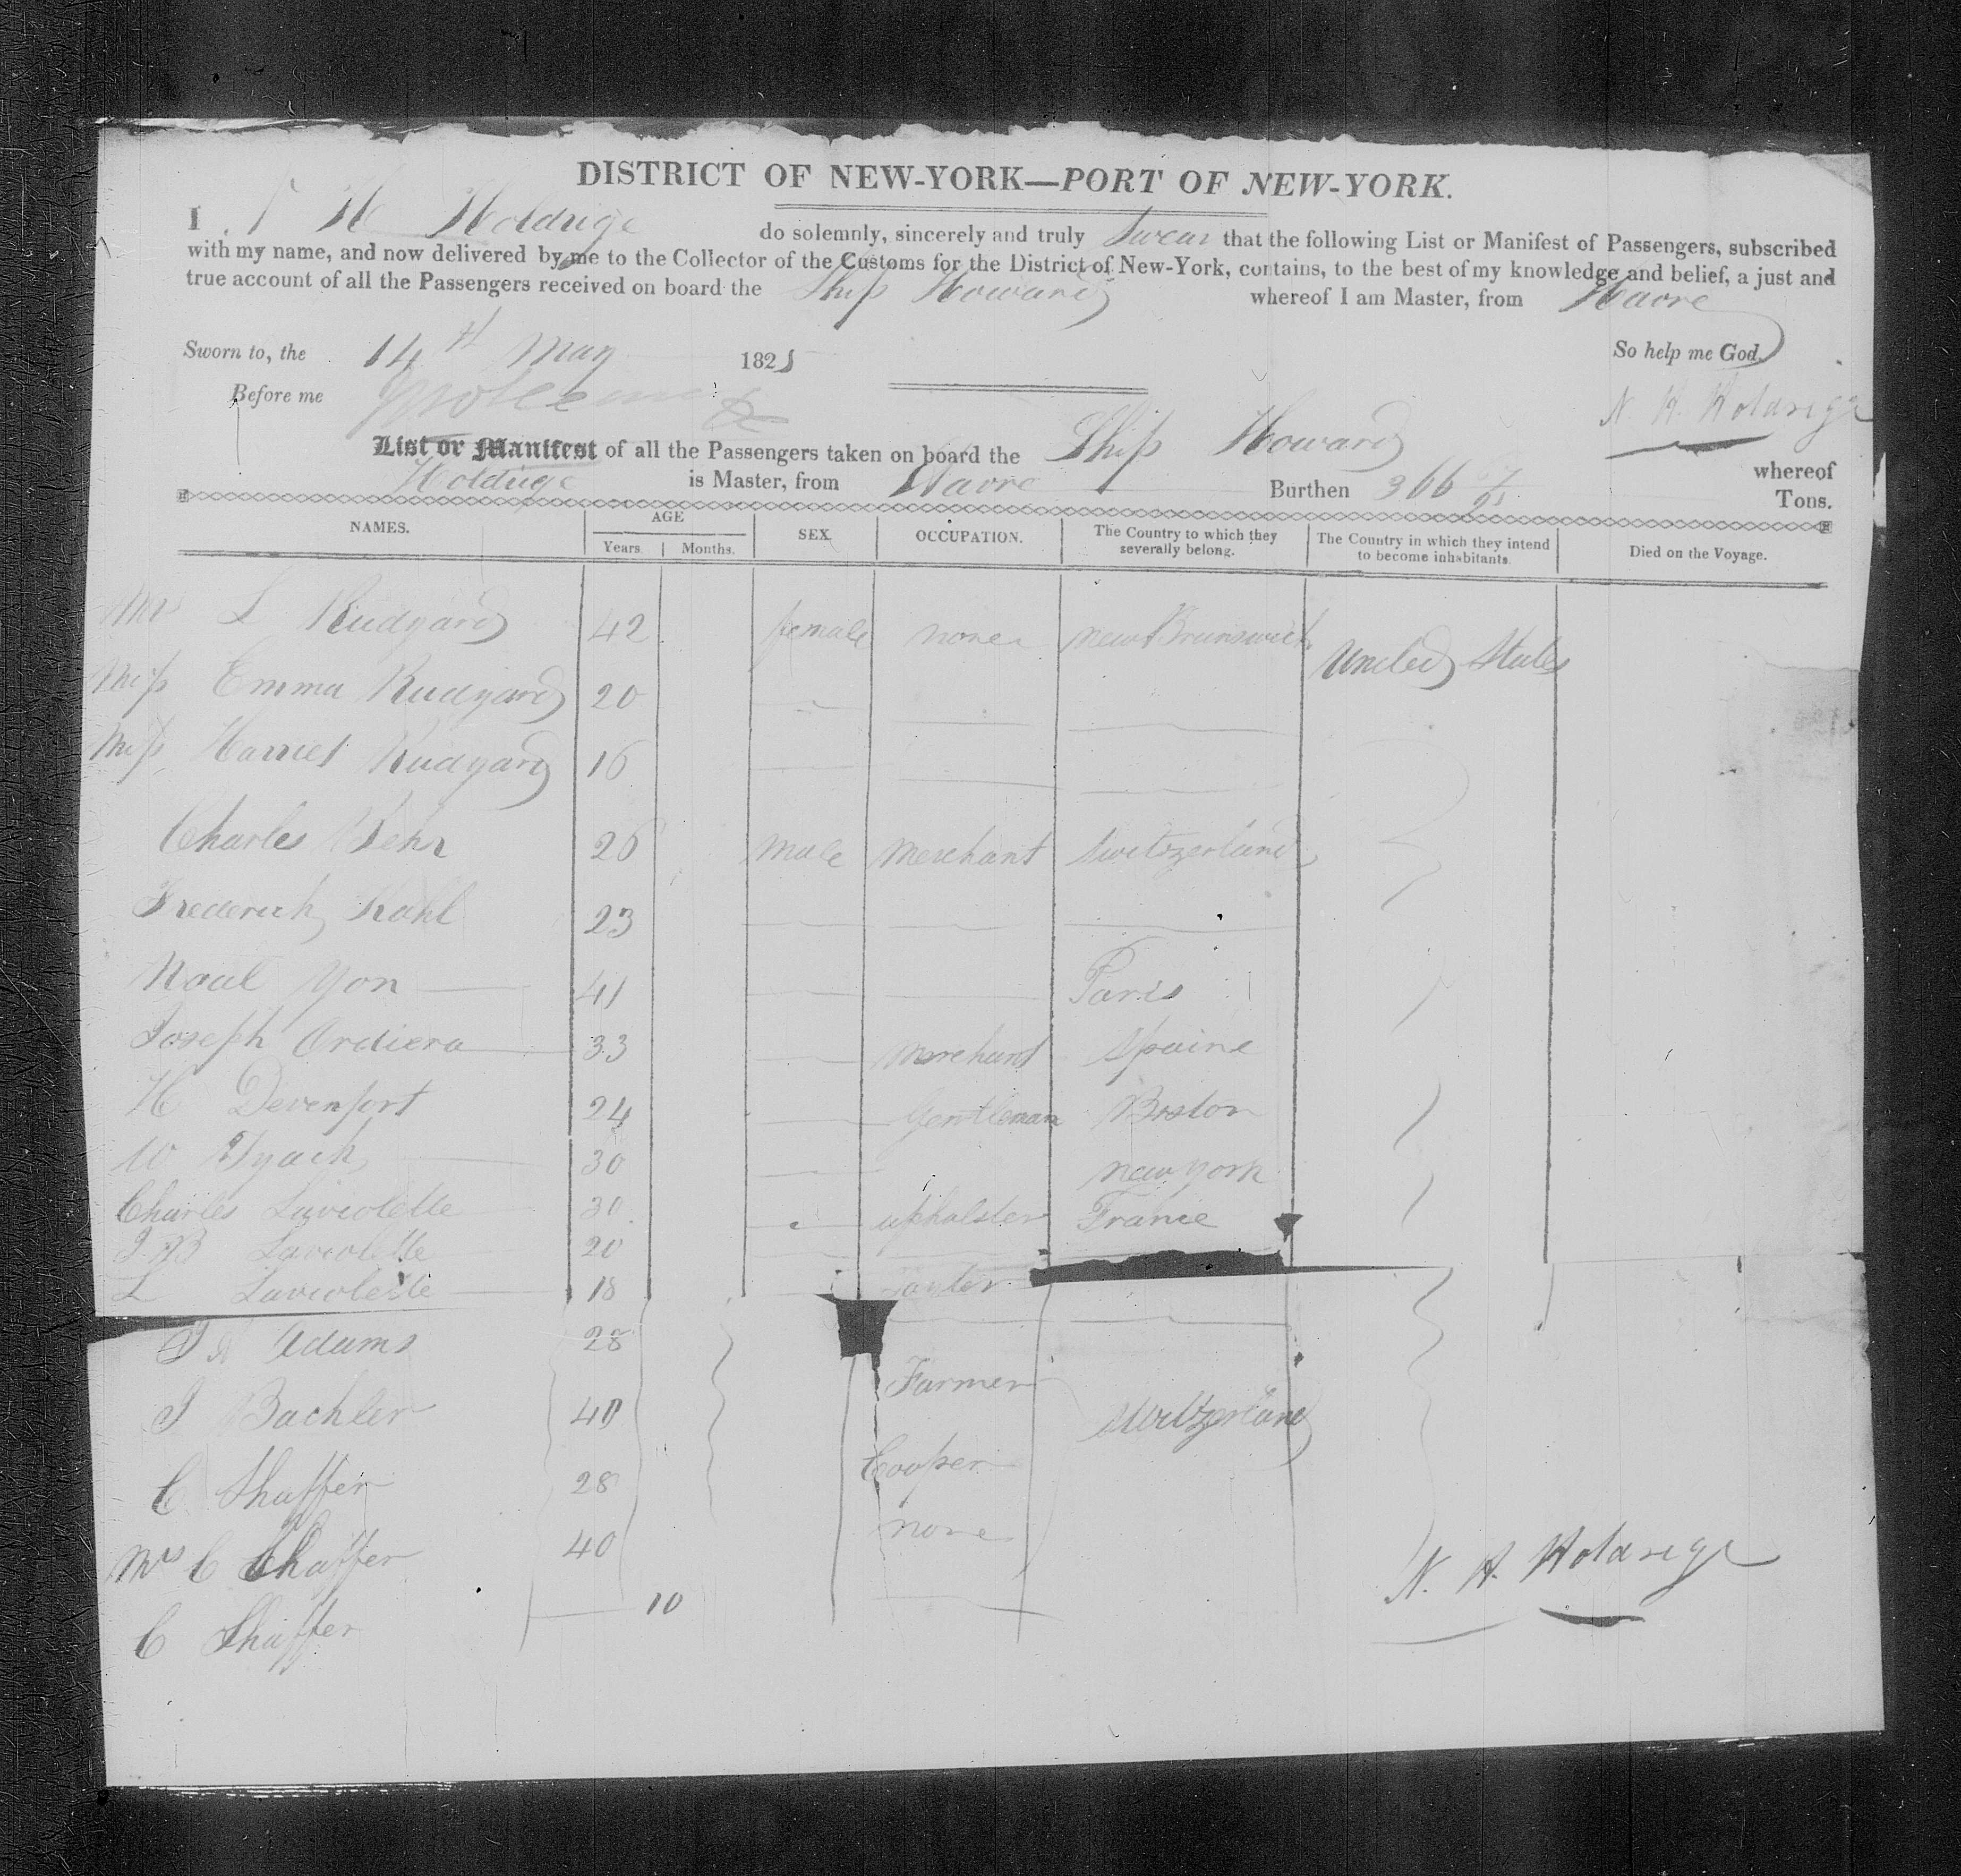 DISTRICT OF NEW-YORK—PORT OF NEW-YORK.
I N H Holdrige do solemnly, sincerely and truly Swear that the following List or Manifest of Passengers, subscribed
with my name, and now delivered by me to the Collector of the Customs for the District of New-York, contains, to the best of my knowledge and belief, a just and
true account of all the Passengers received on board the Ship Howard whereof I am Master, from Havre
Sworn to, the 14th May 1825 So help me God.
Before me N. H. Holdrige
List or Manifest of all the Passengers taken on board the Ship Howard whereof
Holdrige is Master, from Havre Burthen 366 Tons.
NAMES. AGE SEX. OCCUPATION. The Country to which they severally belong. The Country in which they intend to become inhabitants. Died on the Voyage.
Years. Months.
Mrs L Rudyard 42 female none New Brunswick United States
Miss Emma Rudyard 20
Miss Harriet Rudyard 16
Charles Behr 26 male Merchant Switzerland
Frederick Kohl 23
Noal Yon 41 Paris
Joseph Ordiera 33 Merchant Spaine
H Devenport 24 Gentleman Boston
W Tyack 30 New York
Charles Laviolette 30 upholster France
J B Laviolette 20
L Laviolette 18 Taylor
J A Adams 28
J Bachler 40 Farmer Switzerland
C Shaffer 28 Cooper
Mrs C Shaffer 40 none
C Shaffer 10
N. H. Holdrige